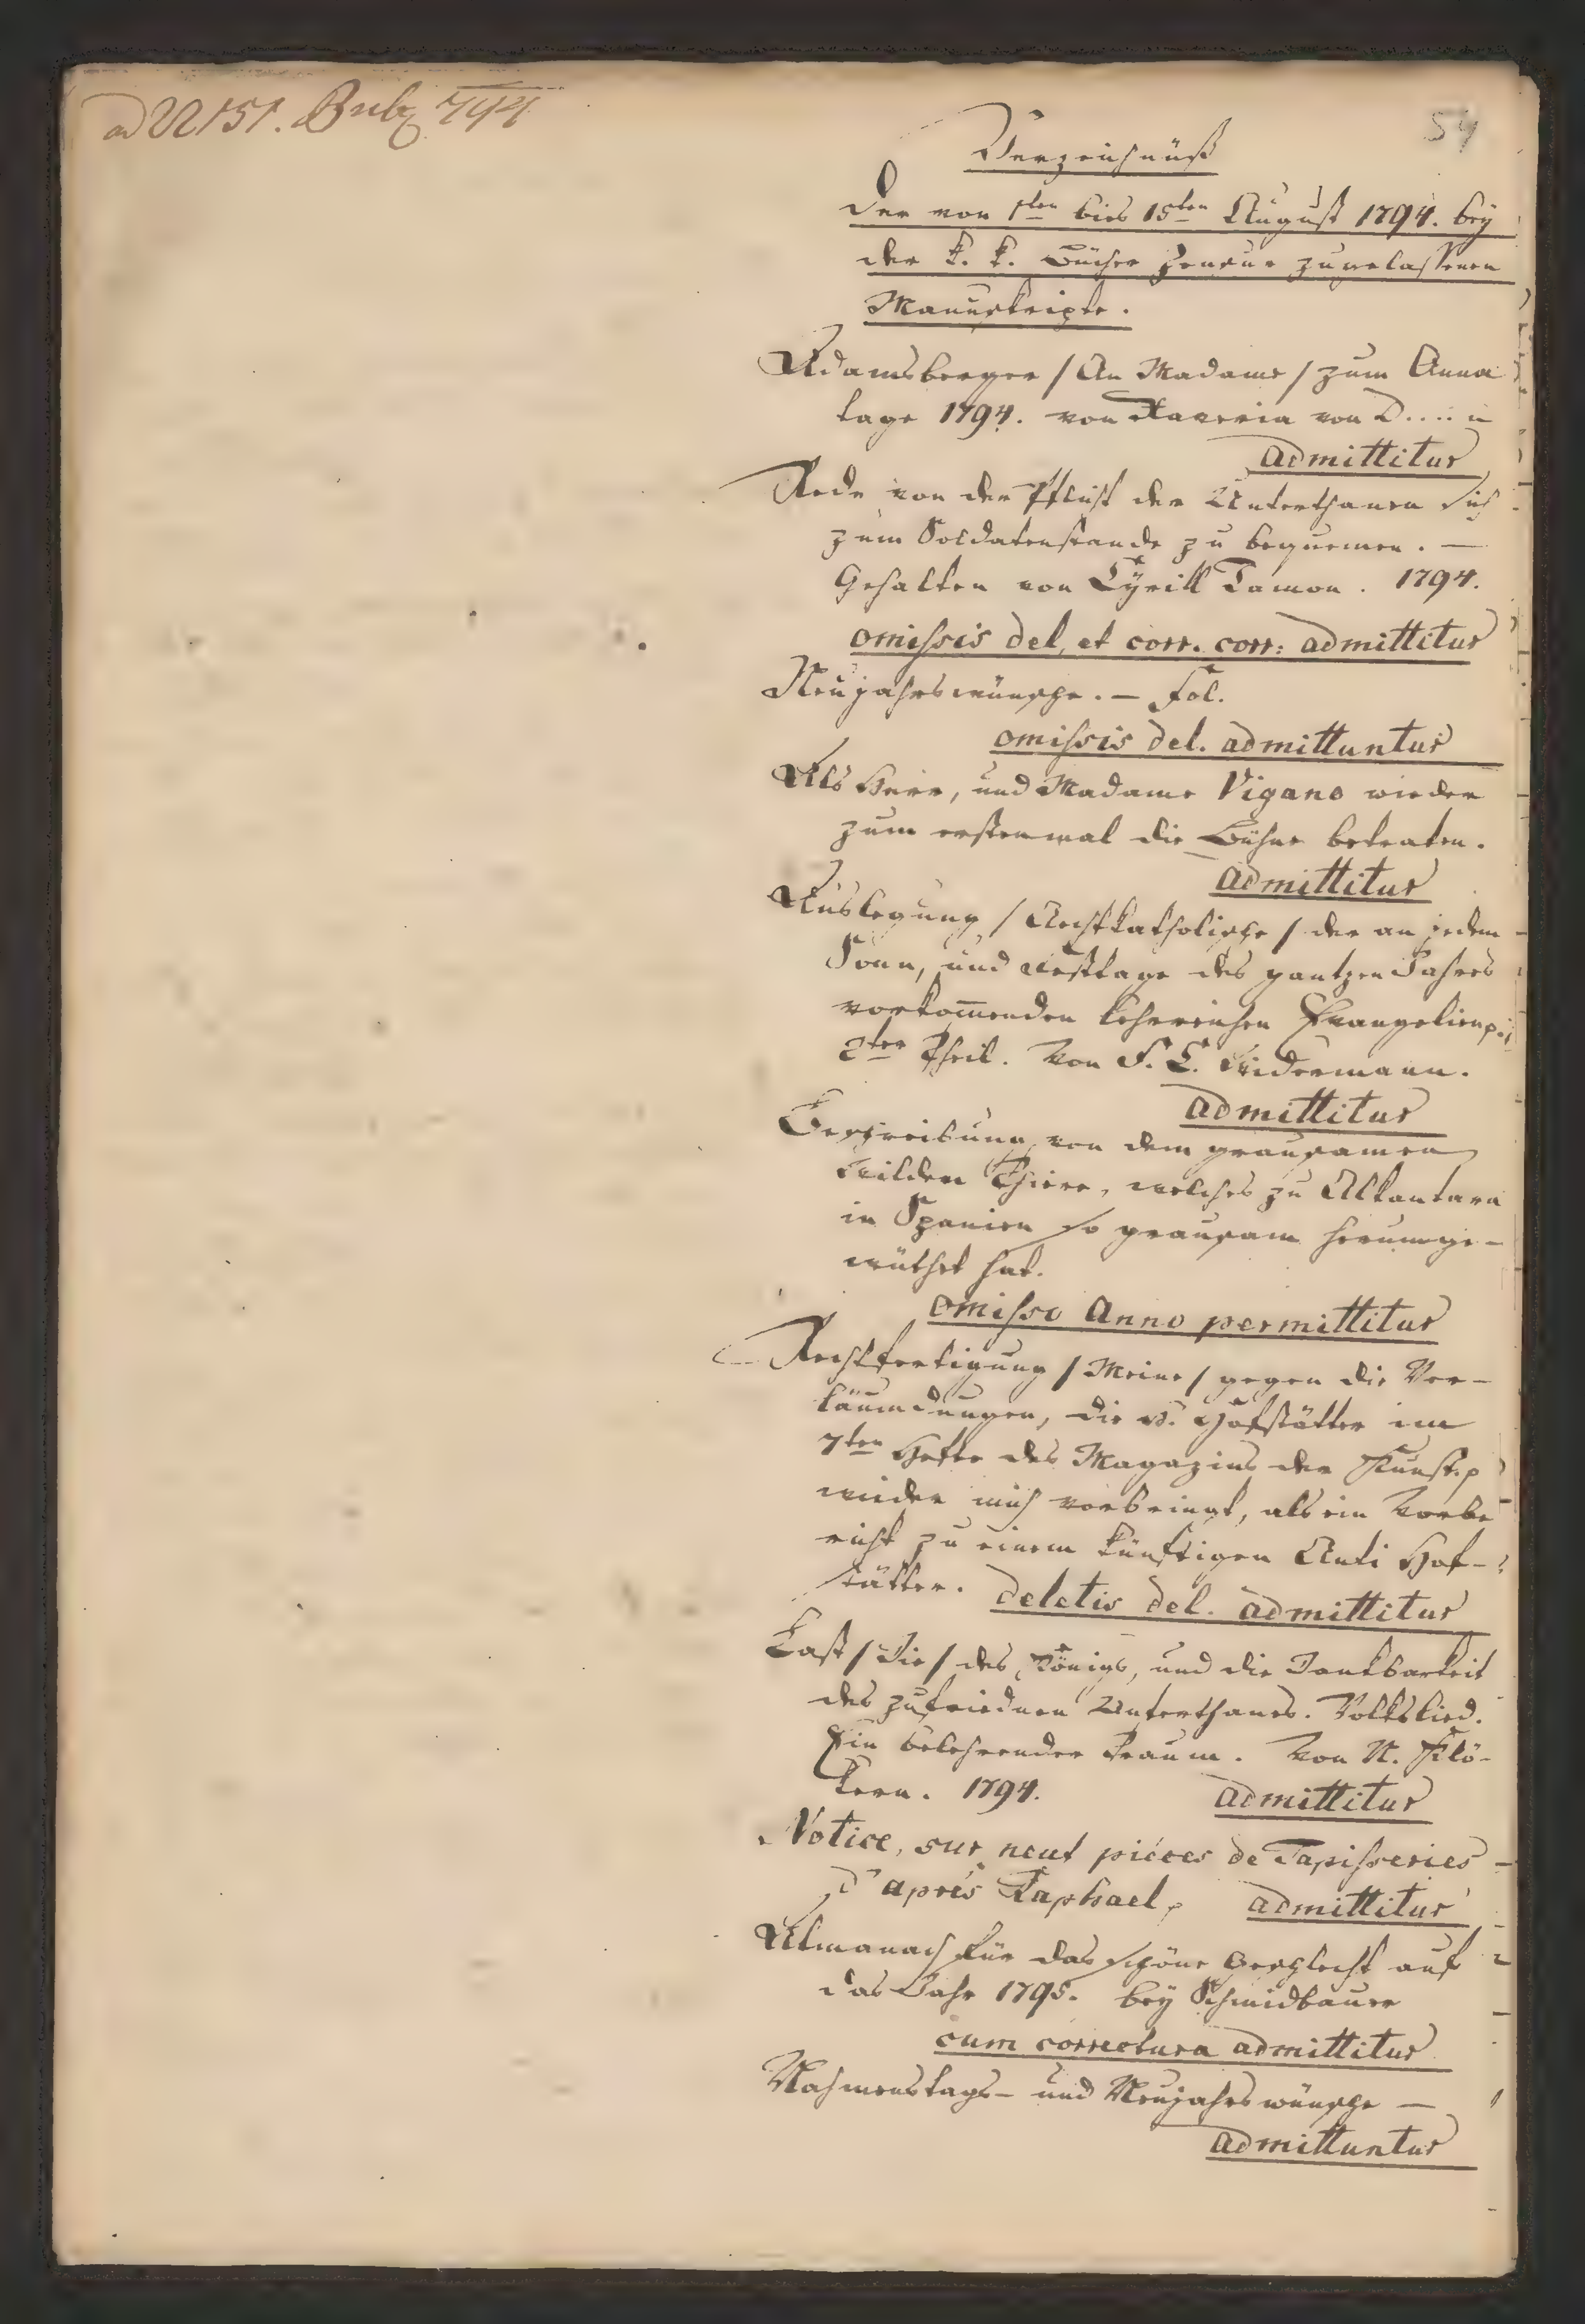 ad 22151. 794
54
Verzeichnüß
der von 1ten bies 15ten August 1794. bey
der k. k. Bücher Zensur zugelassenen
Manuskripte.
Adamsberger / An Madame / zum Anna
tage 1794. von Xaveria von D.....n
admittitur
Rede von der Pflicht der Unterthanen sich
zum Soldatenstande zu bequemen. —
Gehalten von Cyrill Damon. 1794.
omissis del. et corr. corr: admittitur
Neujahrswünsche. — Fol.
omissis del. admittuntur
Als Herr, und Madame Vigano wieder
zum erstenmal die Bühne betraten.
admittitur
Auslegung / Rechtkatholische / der an jedem
Sonn, und Festtage des gantzen Jahres
vorkom̄enden lehrreichen Evangelien p.
2ter Theil. Von F. L. Widermann.
admittitur
Beschreibung von dem grausamen
Wilden Thiere, welches zu Alkantara
in Spanien so grausam herumge-
wüthet hat.
omisso Anno permittitur
Rechtfertigung / Meine / gegen die Ver-
läumdungen, die H. Hofstätter im
7ten Hefte des Magazins der Kunst p
wieder mich vorbringt, als ein Vorbe
richt zu einem künftigen Anti Hof-
stätter. deletis del. admittitur
Last / Die / des Königs, und die Dankbarkeit
des zufriednen Unterthans. Volkslied.
Ein belehrender Traum. Von N. Klö-
kern. 1794. admittitur
Notice, sur neuf piéces de Tapisseries
d'aprés Raphael, admittitur
Almanach für das schöne Geschlecht auf
das Jahr 1795. bey Schmidbauer
cum correctura admittitur
Nahmenstags- und Neujahrswünsche —
admittuntur